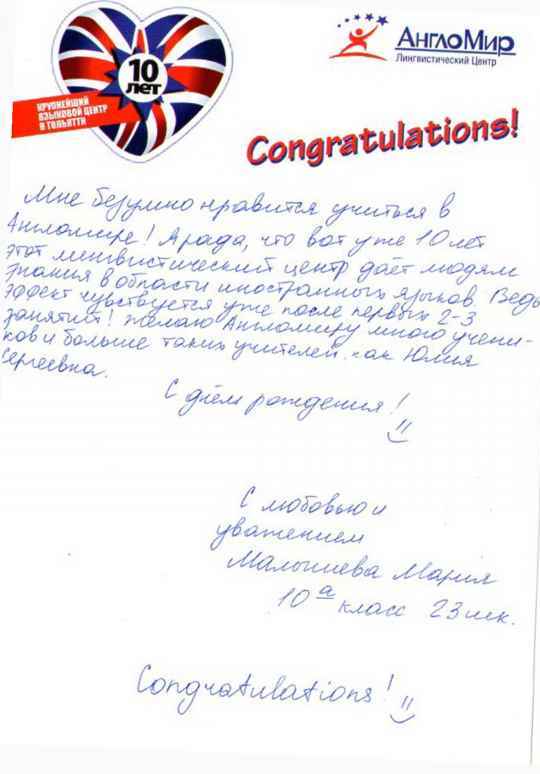 10
ЛЕТ
КРУПНЕЙШИЙ
ЯЗЫКОВОЙ ЦЕНТР
В ТОЛЬЯТТИ
АнглоМир
Лингвистический Центр
Congratulations!
Мне безумно нравится учиться в
Англомире! Я рада, что вот уже 10 лет
этот лингвистический центр даёт людям
знания в области иностранных языков. Ведь
эффект чувствуется уже после первых 2-3
занятий! Желаю Англомиру много учени-
ков и больше таких учителей как Юлия
Сергеевна.
С днём рождения!
С любовью и
уважением
Малышева Мария
10 а класс 23 шк.
Congratulations!